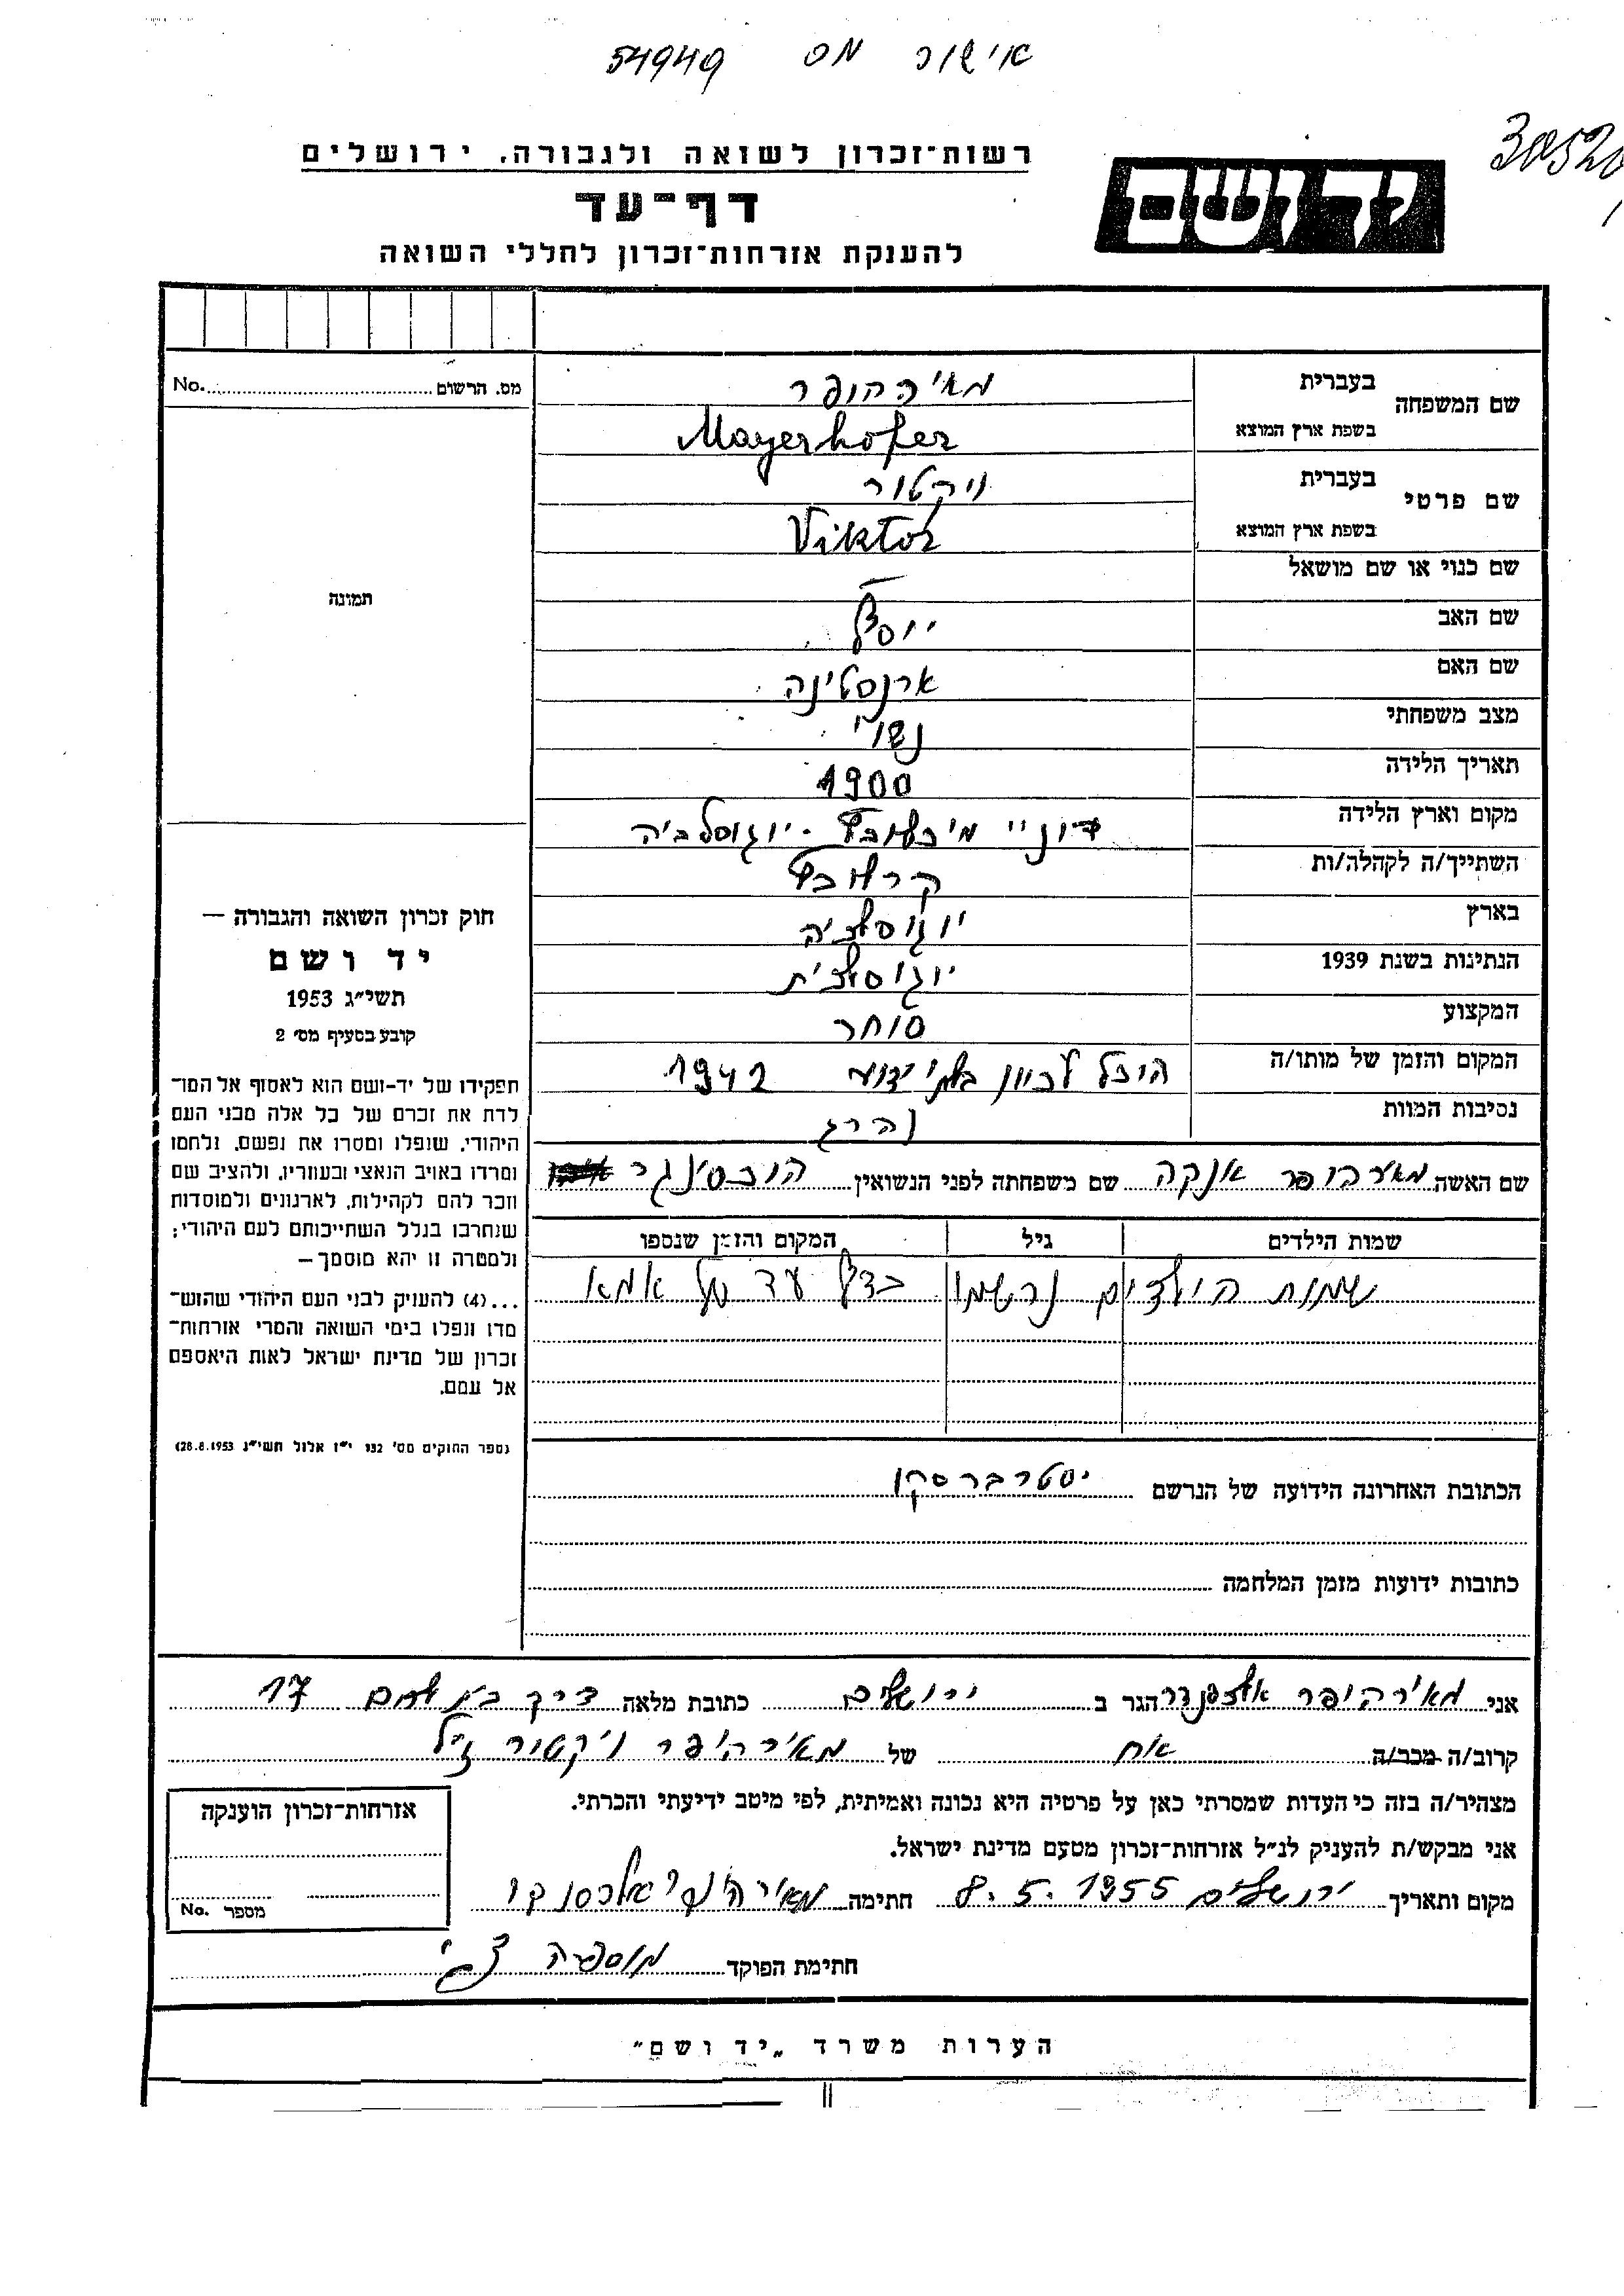 אישור מס 54949
30520
רשות־זכרון לשואה ולגבורה, ירושלים
יד ושם
דף־עד
להענקת אזרחות־זכרון לחללי השואה
מס. הרשום No.
שם המשפחה בעברית מאירהופר
בשפת ארץ המוצא Mayerhofer
שם פרטי בעברית ויקטור
בשפת ארץ המוצא Viktor
שם כנוי או שם מושאל —
תמונה
שם האב יוסף
שם האם ארנסטינה
מצב משפחתי נשוי
תאריך הלידה 1900
מקום וארץ הלידה דוניי מיכלובץ - יוגוסלביה
השתייך/ה לקהלה/ות
בארץ יוגוסלביה
הנתינות בשנת 1939 יוגוסלבית
המקצוע סוחר
המקום והזמן של מותו/ה הובל לכיוון בלתי ידוע 1942
נסיבות המוות נהרג
שם האשה מאירהופר אנקה שם משפחתה לפני הנשואין
שמות הילדים גיל המקום והזמן שנספו
שמות הילדים נרשמו בדף עד של אמא
חוק זכרון השואה והגבורה —
יד ושם
תשי״ג 1953
קובע בסעיף מס׳ 2
תפקידו של יד-ושם הוא לאסוף אל המו־
לדת את זכרם של כל אלה מבני העם
היהודי, שנפלו ומסרו את נפשם, נלחמו
ומרדו באויב הנאצי ובעוזריו, ולהציב שם
וזכר להם לקהילות, לארגונים ולמוסדות
שנחרבו בגלל השתייכותם לעם היהודי;
ולמטרה זו יהא מוסמך —
...(4) להעניק לבני העם היהודי שהוש־
מדו ונפלו בימי השואה והמרי אזרחות־
זכרון של מדינת ישראל לאות היאספם
אל עמם.
(ספר החוקים מס׳ 132 י״ז אלול תשי״ג 28.8.1953)
הכתובת האחרונה הידועה של הנרשם יסטרברסקו
כתובות ידועות מזמן המלחמה
אני מאירהופר אלכסנדר הגר ב ירושלים כתובת מלאה דרך בית לחם 17
קרוב/ה מכר/ה אח של מאירהופר ויקטור ז״ל
מצהיר/ה בזה כי העדות שמסרתי כאן על פרטיה היא נכונה ואמיתית, לפי מיטב ידיעתי והכרתי.
אני מבקש/ת להעניק לנ״ל אזרחות־זכרון מטעם מדינת ישראל.
מקום ותאריך ירושלים 8.5.1955 חתימה
חתימת הפוקד
אזרחות־זכרון הוענקה
מספר No.
הערות משרד „יד ושם״